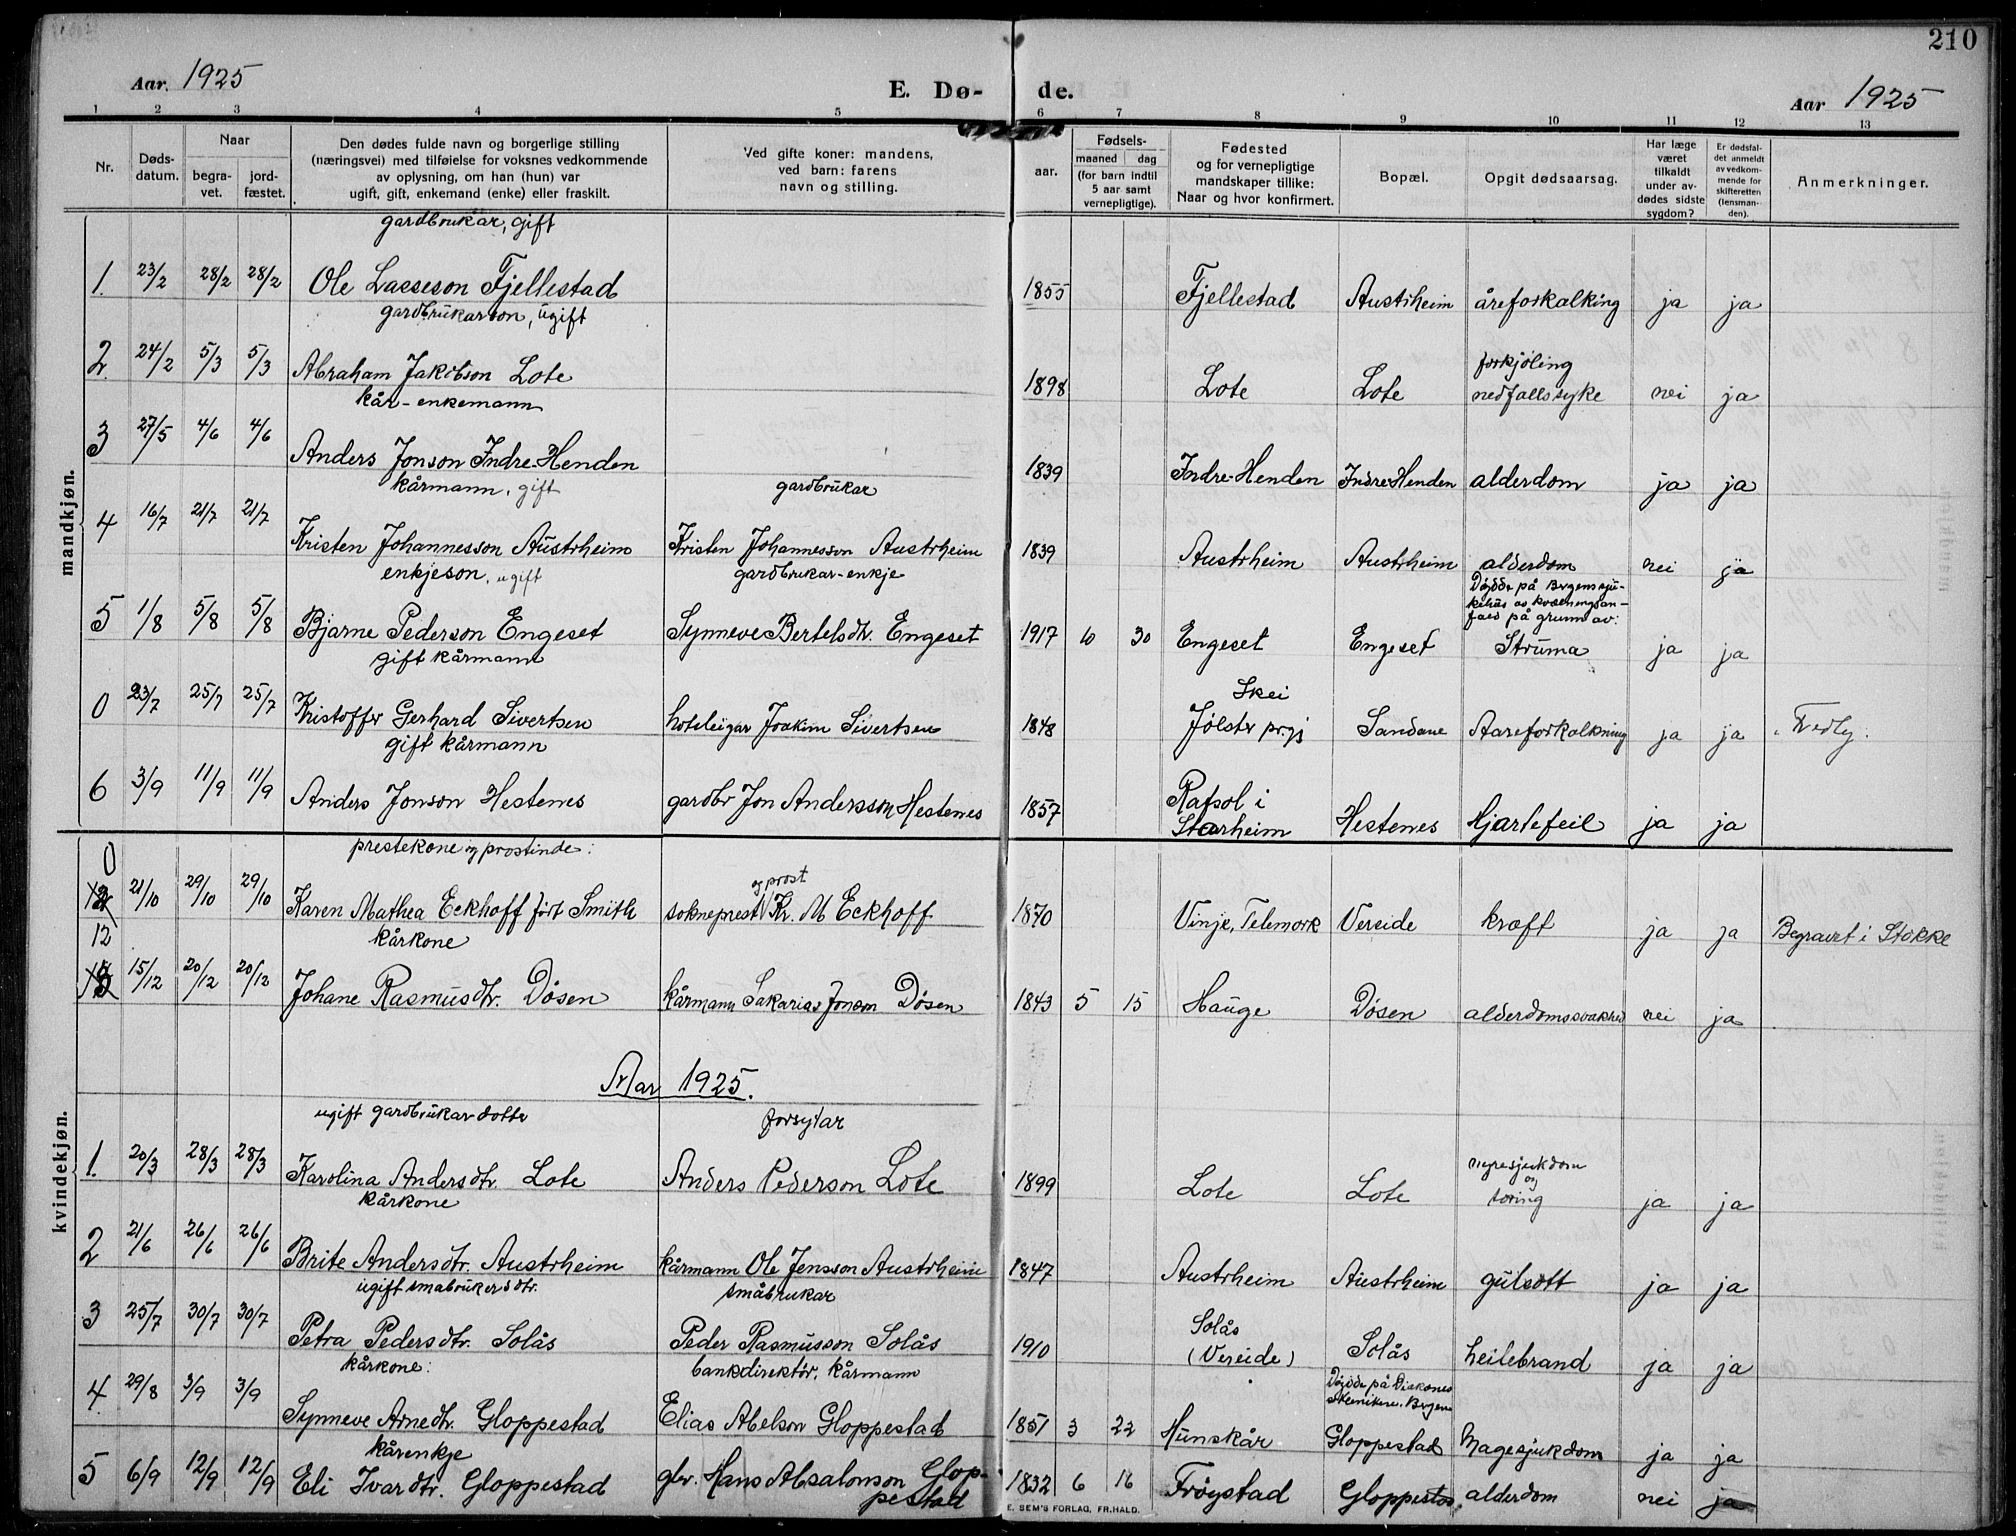 210
Aar. 1925 E. Dø- de. Aar 1925
1 2 3 4 5 6 7 8 9 10 11 12 13
Nr.
Døds-
datum.
Naar
begra-
vet.
jord-
fæstet.
Den dødes fulde navn og borgerlige stilling
(næringsvei) med tilføielse for voksnes vedkommende
av oplysning, om han (hun) var
ugift, gift, enkemand (enke) eller fraskilt.
Ved gifte koner: mandens,
ved barn: farens
navn og stilling.
aar.
Fødsels-
maaned dag
(for barn indtil
5 aar samt
vernepligtige).
Fødested
og for vernepligtige
mandskaper tillike:
Naar og hvor konfirmert.
Bopæl.
Opgit dødsaarsag.
Har læge
været
tilkaldt
under av-
dødes sidste
sygdom?
Er dødsfal-
det anmeldt
av vedkom-
mende for
skifteretten
(lensman-
den).
Anmerkninger.
mandkjøn.
gardbrukar, gift
1. 23/2 28/2 28/2 Ole Lasseson Fjellestad 1855 Fjellestad Austrheim åreforkalking ja ja
gardbrukarson, ugift
2. 24/2 5/3 5/3 Abraham Jakobson Lote 1898 Lote Lote forkjöling
nedfallssyke nei ja
kår-enkemann
3 27/5 4/6 4/6 Anders Jonson Indre-Henden 1839 Indre-Henden Indre-Henden alderdom ja ja
kårmann, gift gardbrukar
4 16/7 21/7 21/7 Kristen Johannesson Austrheim Kristen Johannesson Austrheim 1839 Austrheim Austrheim alderdom nei ja
enkjeson, ugift gardbrukar-enkje
Döydde på Bergens sju-
kehus av kvælningsan-
fald på grunn av:
5 1/8 5/8 5/8 Bjarne Pederson Engeset Synneve Bertelsdtr. Engeset 1917 10 30 Engeset Engeset Struma ja ja
gift kårmann
0 23/7 25/7 25/7 Kristoffer Gerhard Sivertsen hoteleigar Joakim Sivertsen 1848 Skei
Jölster prgj Sandane Aareforkalkning ja ja Fredly.
gift kårmann
6 3/9 11/9 11/9 Anders Jonson Hestenes gardbr Jon Andersson Hestenes 1857 Rafsol i
Starheim Hestenes Hjartefeil ja ja
prestekone og prostinde:
0 21/10 29/10 29/10 Karen Mathea Eckhoff født Smith sokneprest og prost Kr. M Eckhoff 1870 Vinje, Telemork Vereide kræft ja ja Begravet i Stokke
kårkone
12 15/12 20/12 20/12 Johane Rasmusdtr. Dösen kårmann Sakarias Jonson Dösen 1843 5 15 Hauge Dösen alderdomssvakhed nei ja
Aar 1925.
kvindekjøn.
ugift gardbrukar-dotte forsytar
1. 20/3 28/3 28/3 Karolina Andersdtr. Lote Anders Pederson Lote 1899 Lote Lote nyresjukdom
og
tæring ja ja
kårkone
2 21/6 26/6 26/6 Brite Andersdtr. Austrheim kårmann Ole Jensson Austrheim 1847 Austrheim Austrheim gulsott ja ja
ugift småbrukersdtr. småbrukar
3 25/7 30/7 30/7 Petra Pedersdtr. Solås Peder Rasmusson Solås 1910 Solås
(Vereide) Solås heilebrand ja ja
kårkone: bankdirektör, kårmann
4 29/8 3/9 3/9 Synneve Arnedtr. Gloppestad Elias Abelson Gloppestad 1851 3 22 Hunskår Döydde på Diakones
Bergen
Gloppestad Magesjukdom ja ja
kårenkje
5 6/9 12/9 12/9 Eli Ivardtr. Gloppestad gbr. Hans Absalonson Glop-
pestad 1832 6 16 Fröystad Gloppestad alderdom nei ja
E. SEM'S FORLAG, FR.HALD.